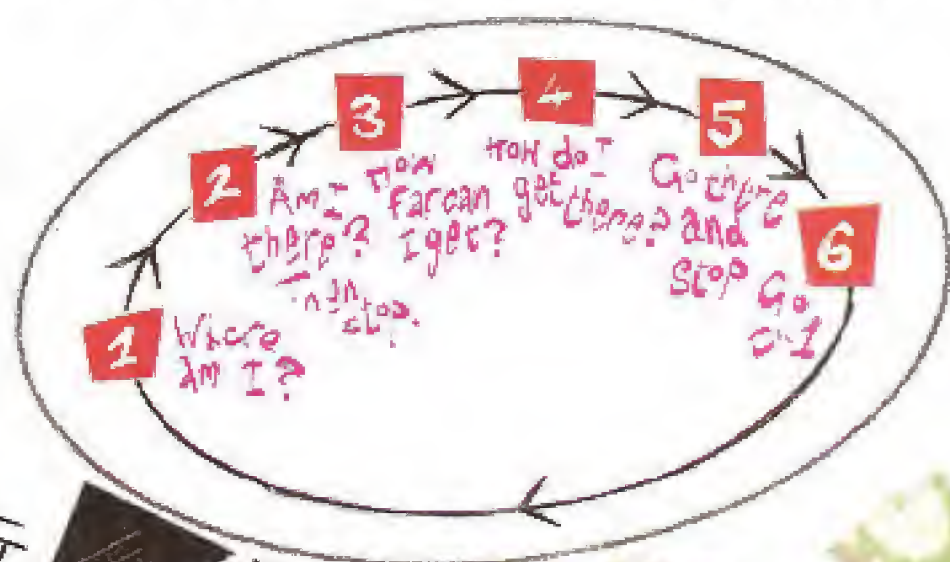 1
Where
am I?
2
Am I
there?
Then
stop.
3
How
Far can
I get?
4
How do I
get there?
5
Go there
and
stop
6
Go
1